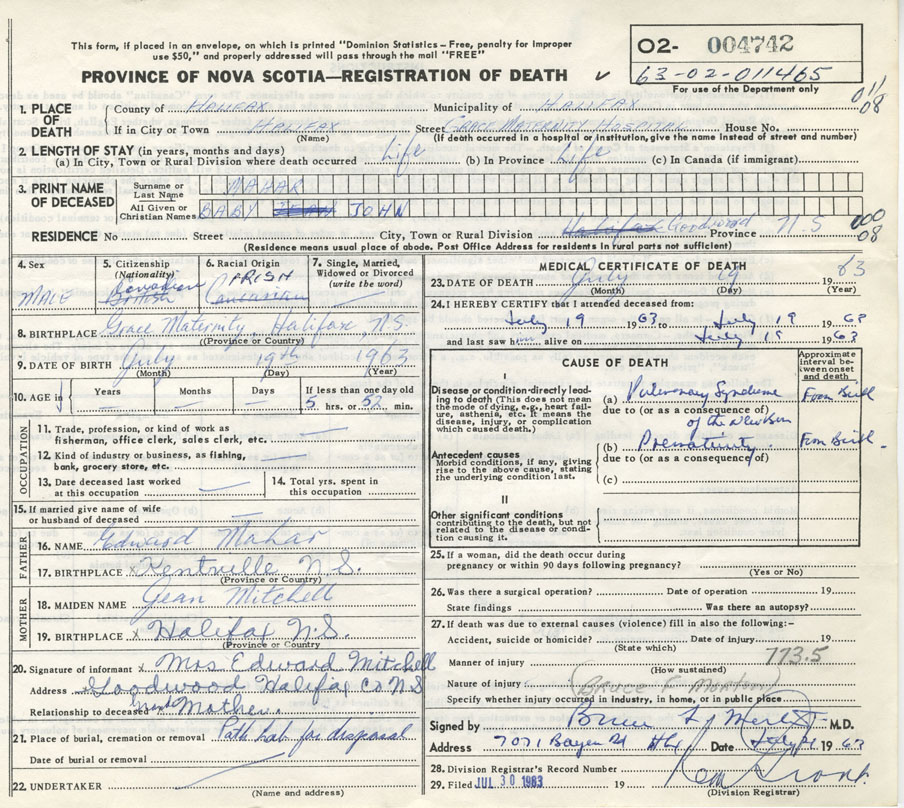 This form, if placed in an envelope, on which is printed "Dominion Statistics – Free, penalty for improper
use $50," and properly addressed will pass through the mail "FREE"
PROVINCE OF NOVA SCOTIA—REGISTRATION OF DEATH
O2- 004742
63-02-011465
For use of the Department only
011
08
1. PLACE OF DEATH County of HALIFAX Municipality of HALIFAX
If in City or Town HALIFAX Street GRACE MATERNITY HOSPITAL House No.
(Name) (If death occurred in a hospital or institution, give the name instead of street and number)
2. LENGTH OF STAY (in years, months and days)
(a) In City, Town or Rural Division where death occurred Life (b) In Province Life (c) In Canada (if immigrant)
3. PRINT NAME OF DECEASED Surname or Last Name MAHAR
All Given or Christian Names BABY JOHN
RESIDENCE No Street City, Town or Rural Division Halifax Goodwood Province N.S
000
08
(Residence means usual place of abode. Post Office Address for residents in rural parts not sufficient)
4. Sex MALE
5. Citizenship (Nationality) Canadian British
6. Racial Origin IRISH Caucasian
7. Single, Married, Widowed or Divorced (write the word)
8. BIRTHPLACE Grace Maternity, Halifax, N.S.
(Province or Country)
9. DATE OF BIRTH July 19th 1963
(Month) (Day) (Year)
10. AGE in Years Months Days If less than one day old
5 hrs. or 52 min.
OCCUPATION
11. Trade, profession, or kind of work as
fisherman, office clerk, sales clerk, etc.
12. Kind of industry or business, as fishing,
bank, grocery store, etc.
13. Date deceased last worked
at this occupation
14. Total yrs. spent in
this occupation
15. If married give name of wife
or husband of deceased
FATHER
16. NAME Edward Mahar
17. BIRTHPLACE x Kentville N.S.
(Province or Country)
MOTHER
18. MAIDEN NAME Jean Mitchell
19. BIRTHPLACE x Halifax N.S.
(Province or Country)
20. Signature of informant x Mrs. Edward Mitchell
Address Goodwood Halifax Co N.S
Relationship to deceased Mother.
21. Place of burial, cremation or removal Path Lab for disposal
Date of burial or removal
22. UNDERTAKER
(Name and address)
MEDICAL CERTIFICATE OF DEATH
23. DATE OF DEATH July 19 1963
(Month) (Day) (Year)
24. I HEREBY CERTIFY that I attended deceased from:
July 19 1963 to July 19 1963
and last saw him alive on July 19 1963
CAUSE OF DEATH
Approximate interval between onset and death
I
Disease or condition directly leading to death (This does not mean the mode of dying, e.g., heart failure, asthenia, etc. It means the disease, injury, or complication which caused death.)
(a) Pulmonary Syndrome From Birth
due to (or as a consequence of)
of the Newborn
Antecedent causes
Morbid conditions, if any, giving rise to the above cause, stating the underlying condition last.
(b) Prematurity From Birth.
due to (or as a consequence of)
(c)
II
Other significant conditions
contributing to the death, but not related to the disease or condition causing it.
25. If a woman, did the death occur during
pregnancy or within 90 days following pregnancy?
(Yes or No)
26. Was there a surgical operation? Date of operation 19
State findings Was there an autopsy?
27. If death was due to external causes (violence) fill in also the following:–
Accident, suicide or homicide? Date of injury 19
(State which)
Manner of injury 773.5
(How sustained)
Nature of injury (Bruce F Morton)
Specify whether injury occurred in industry, in home, or in public place
Signed by M.D.
Address 7071 Bayers Rd Hfx Date 1963
28. Division Registrar's Record Number
29. Filed JUL 30 1963 19
(Division Registrar)